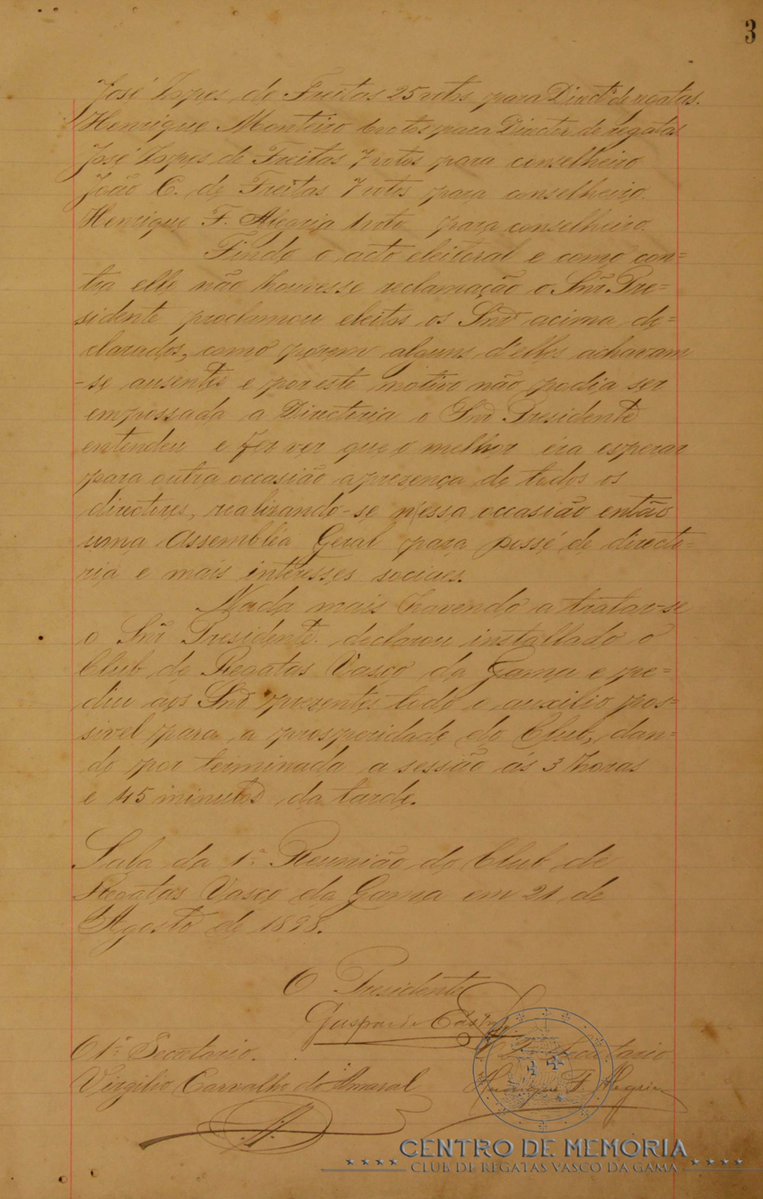 3
José Lopes de Freitas 25 votos para Direct. de regatas.
Henrique Monteiro 6 votos para Director de regatas
José Lopes de Freitas 7 votos para conselheiro
João C. de Freitas 7 votos para conselheiro
Henrique F. Alegria 1 voto para conselheiro.
Findo o acto eleitoral e como con-
tra elle não houvesse reclamação o Snr. Pre-
sidente proclamou eleitos os Snrs acima de-
clarados, como porem alguns d'elles achavam
-se ausentes e por este motivo não podia ser
empossada a Directoria o Snr Presidente
entendeu e fez ver que o melhor era esperar
para outra occasião a presença de todos os
directores, realizando-se n'essa occasião então
uma Assemblea Geral para posse de directo-
ria e mais interesses sociaes.
Nada mais havendo a tratar-se
o Snr Presidente declarou installado o
Club de Regatas Vasco da Gama e pe-
diu aos Snrs presentes todo o auxilio pos-
sivel para a prosperidade do Club, dan-
do por terminada a sessão ás 3 horas
e 45 minutos da tarde.
Sala da 1ª Reunião do Club de
Regatas Vasco da Gama em 21 de
Agosto de 1898.
O Presidente
Gaspar de Castro
O 1º Secretario. Secretario
Virgilio Carvalho do Amaral Henrique F. Alegria
CENTRO DE MEMÓRIA
CLUB DE REGATAS VASCO DA GAMA